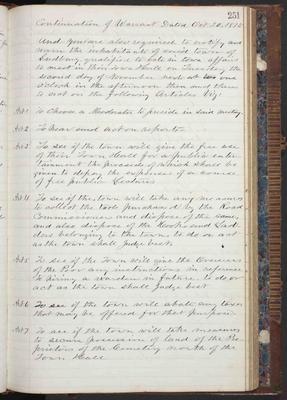 251
Continuation of Warrant Dated Oct. 20, 1875
And you are also required to notify and
warn the inhabitants of said town of
Sudbury, qualified to vote in town affairs
to meet in their Town Hall on Tuesday the
second day of November next at one
o'clock in the afternoon then and there
to act on the following Articles Viz:
Art 1 To choose a Moderator to preside in said meeting
Art 2 To hear and act on reports
Art 3 To see if the town will give the free use
of their Town Hall for a public enter
tainment the proceeds of which shall be
given to defray the expenses of a course
of free public Lectures
Art 4 To see if the town will take any measures
to collect the tools purchased by the Road
Commissioner and dispose of the same,
and also dispose of the Hooks and Lad
ders belonging to the town, to do or act
as the town shall judge best
Art 5 To see if the Town will give the Overseers
of the Poor any instructions in reference
to hiring a warden in future. to do or
act as the town shall judge best
Art 6 To see if the town will abate any taxes
that may be offered for that purpose
Art 7 To see if the town will take measures
to secure possession of land of the Pro
prietors of the Cemetery north of the
Town Hall